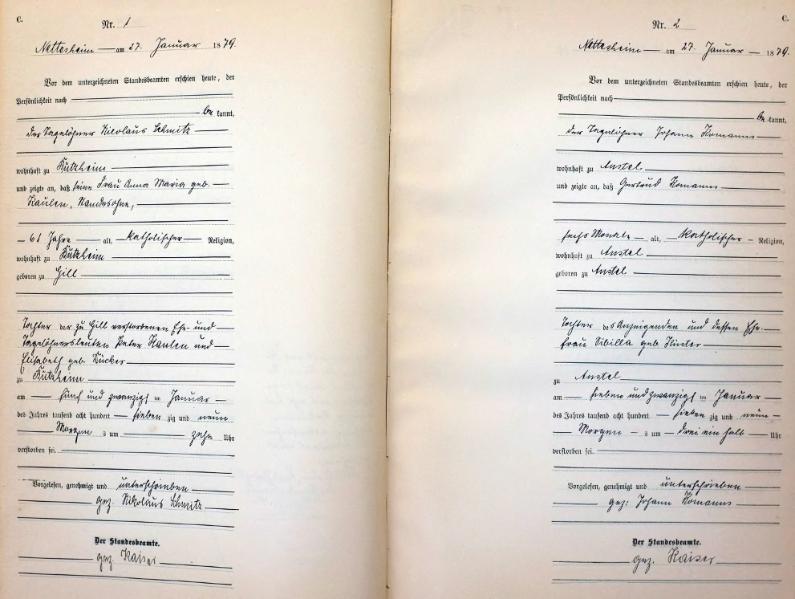 C.
Nr. 1
Nettesheim am 27. Januar 1879.
Vor dem unterzeichneten Standesbeamten erschien heute, der
Persönlichkeit nach
be kannt,
der Tagelöhner Nikolaus Schmitz
wohnhaft zu Butzheim
und zeigte an, daß seine Frau Anna Maria geb.
Kaulen, Standesohne,
61 Jahre alt, katholischer Religion,
wohnhaft zu Butzheim
geboren zu Gill
Tochter der zu Gill verstorbenen Ehe- und
Tagelöhnersleuten Peter Kaulen und
Elisabeth geb. Bücker
zu Butzheim
am fünf und zwanzigsten Januar
des Jahres tausend acht hundert sieben zig und neun
Morgens um zehn Uhr
verstorben sei.
Vorgelesen, genehmigt und unterschrieben
gez. Nikolaus Schmitz
Der Standesbeamte.
gez. Kaiser
C.
Nr. 2
Nettesheim am 27. Januar 1879.
Vor dem unterzeichneten Standesbeamten erschien heute, der
Persönlichkeit nach
be kannt,
der Tagelöhner Johann Homanns
wohnhaft zu Anstel
und zeigte an, daß Gertrud Homanns
sechs Monate alt, katholischer Religion,
wohnhaft zu Anstel
geboren zu Anstel
Tochter des Anzeigenden und dessen Ehe-
frau Sibilla geb.
zu Anstel
am sieben und zwanzigsten Januar
des Jahres tausend acht hundert sieben zig und neun
Morgens um drei ein halb Uhr
verstorben sei.
Vorgelesen, genehmigt und unterschrieben
gez: Johann Homanns
Der Standesbeamte.
gez. Kaiser